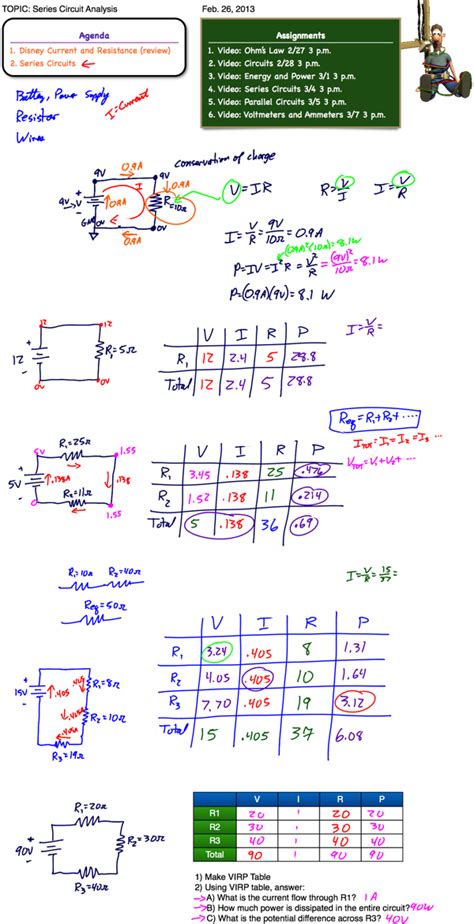 TOPIC: Series Circuit Analysis
Feb. 26, 2013
Agenda
1. Disney Current and Resistance (review)
2. Series Circuits
Assignments
1. Video: Ohm's Law 2/27 3 p.m.
2. Video: Circuits 2/28 3 p.m.
3. Video: Energy and Power 3/1 3 p.m.
4. Video: Series Circuits 3/4 3 p.m.
5. Video: Parallel Circuits 3/5 3 p.m.
6. Video: Voltmeters and Ammeters 3/7 3 p.m.
Battery, Power Supply
I=Current
Resistor
Wires
Conservation of charge
0.9A
9V
9V
I
0.9A
9V
V
0.9A
R=10Ω
GND 0V
0V
0.9A
V=IR
R=V/I
I=V/R
I=V/R=9V/10Ω=0.9A
(0.9A)²(10Ω)=8.1W
P=IV=I²R=V²/R=(9V)²/10Ω=8.1W
P=(0.9A)(9V)=8.1 W
12
12
12
R₁=5Ω
0V
0V
I=V/R=
V I R P
R₁ 12 2.4 5 28.8
Total 12 2.4 5 28.8
Req=R₁+R₂+....
ITOT=I₁=I₂=I₃ ...
VTOT=V₁+V₂+ ...
R₁=25Ω
5V
1.55
5V
.138A
.138
R₂=11Ω
0
1.55
V I R P
R₁ 3.45 .138 25 .476
R₂ 1.52 .138 11 .214
Total 5 .138 36 .69
R₁=10Ω R₂=40Ω
Req=50Ω
I=V/R=15/37=
V I R P
R₁ 3.24 .405 8 1.31
R₂ 4.05 .405 10 1.64
R₃ 7.70 .405 19 3.12
Total 15 .405 37 6.08
15V
.405
.405
R₁=8Ω
.405
R₂=10Ω
.405
R₃=19Ω
R₁=20Ω
90V
R₂=30Ω
R₃=40Ω
V I R P
R1 20 1 20 20
R2 30 1 30 30
R3 40 1 40 40
Total 90 1 90 90
1) Make VIRP Table
2) Using VIRP table, answer:
A) What is the current flow through R1? 1A
B) How much power is dissipated in the entire circuit? 90W
C) What is the potential difference across R3? 40V